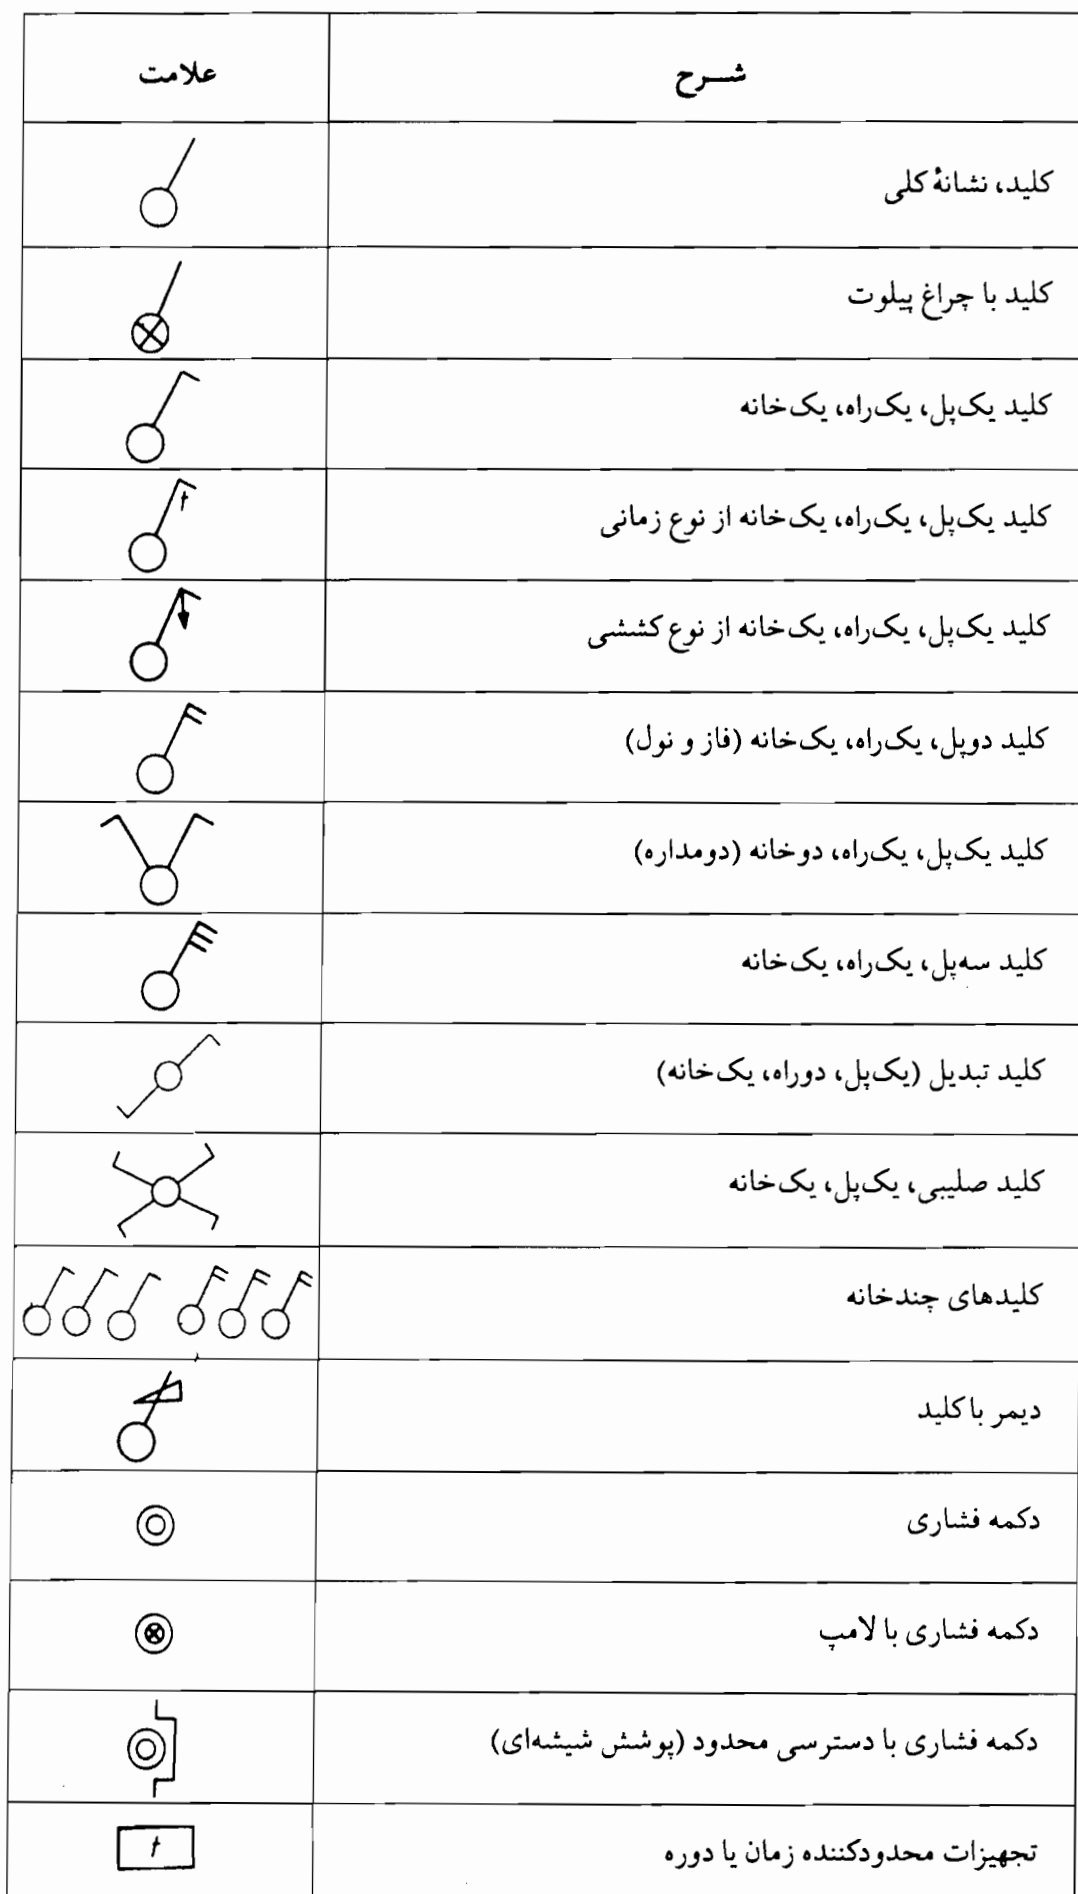 شـــرح علامت
کلید، نشانهٔ کلی
کلید با چراغ پیلوت
کلید یک‌پل، یک‌راه، یک‌خانه
کلید یک‌پل، یک‌راه، یک‌خانه از نوع زمانی
t
کلید یک‌پل، یک‌راه، یک‌خانه از نوع کششی
کلید دوپل، یک‌راه، یک‌خانه (فاز و نول)
کلید یک‌پل، یک‌راه، دوخانه (دومداره)
کلید سه‌پل، یک‌راه، یک‌خانه
کلید تبدیل (یک‌پل، دوراه، یک‌خانه)
کلید صلیبی، یک‌پل، یک‌خانه
کلیدهای چندخانه
دیمر با کلید
دکمه فشاری
دکمه فشاری با لامپ
دکمه فشاری با دسترسی محدود (پوشش شیشه‌ای)
تجهیزات محدودکننده زمان یا دوره
t